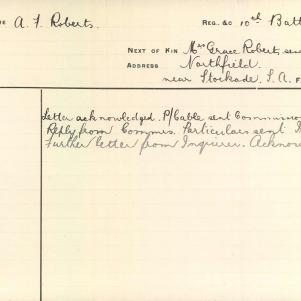 A. F. Roberts. REG. &C 10th Batt
NEXT OF KIN Mrs Grace Roberts, sen
ADDRESS Northfield.
near Stockade, S. A.
Letter acknowledged. P/Cable sent Commission
Reply from Commrs. Particulars sent
Further letter from Inquirer. Acknow